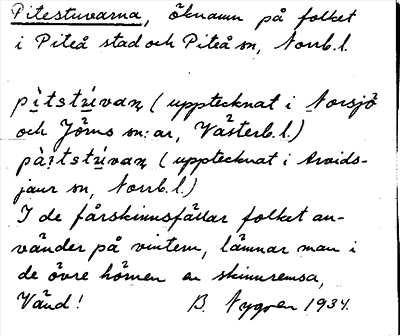 Pitestuvarna, öknamn på folket
i Piteå stad och Piteå sn, Norrb. l.
pìtstʉ́vaɳ (upptecknat i Norsjö
och Jörns sn:ar, Västerb. l.)
pàitstʉ́vaɳ (upptecknat i Arvids-
jaur sn, Norrb. l.)
I de fårskinnsfällar folket an-
vänder på vintern, lämnar man i
de övre hörnen en skinnremsa,
Vänd! B. Nygren 1934.